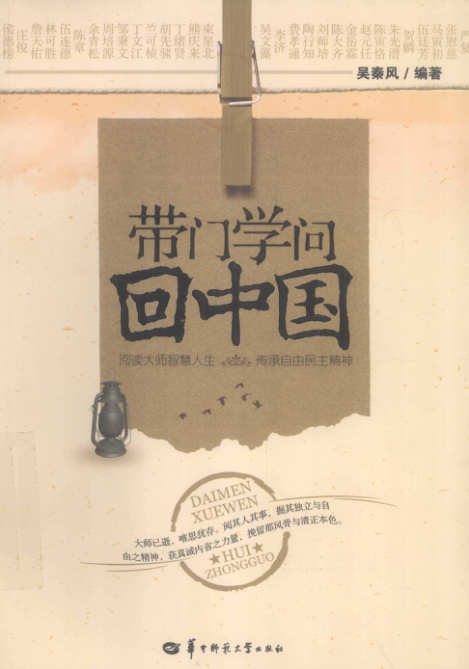 张慰慈
马寅初
伍廷芳
贺麟
朱光潜
陈寅恪
赵元任
金岳霖
陈大齐
刘师培
陶行知
费孝通
李济
吴文藻
束星北
熊庆来
丁绪贤
胡先骕
竺可桢
丁文江
邹秉文
周培源
余青松
陈章
伍连德
林可胜
詹天佑
庄俊
侯德榜
吴秦风 / 编著
带门学问
回中国
阅读大师智慧人生 传承自由民主精神
DAIMEN
XUEWEN
大师已逝，唯思犹存。阅其人其事，掘其独立与自
由之精神，获真诚内省之力量，挽留那风骨与清正本色。
HUI
ZHONGGUO
华中师范大学出版社